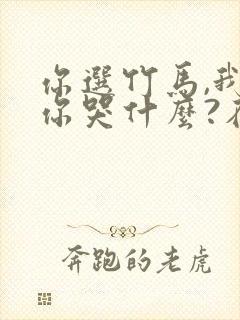 你選竹馬,我
你哭什麼?
奔跑的老虎